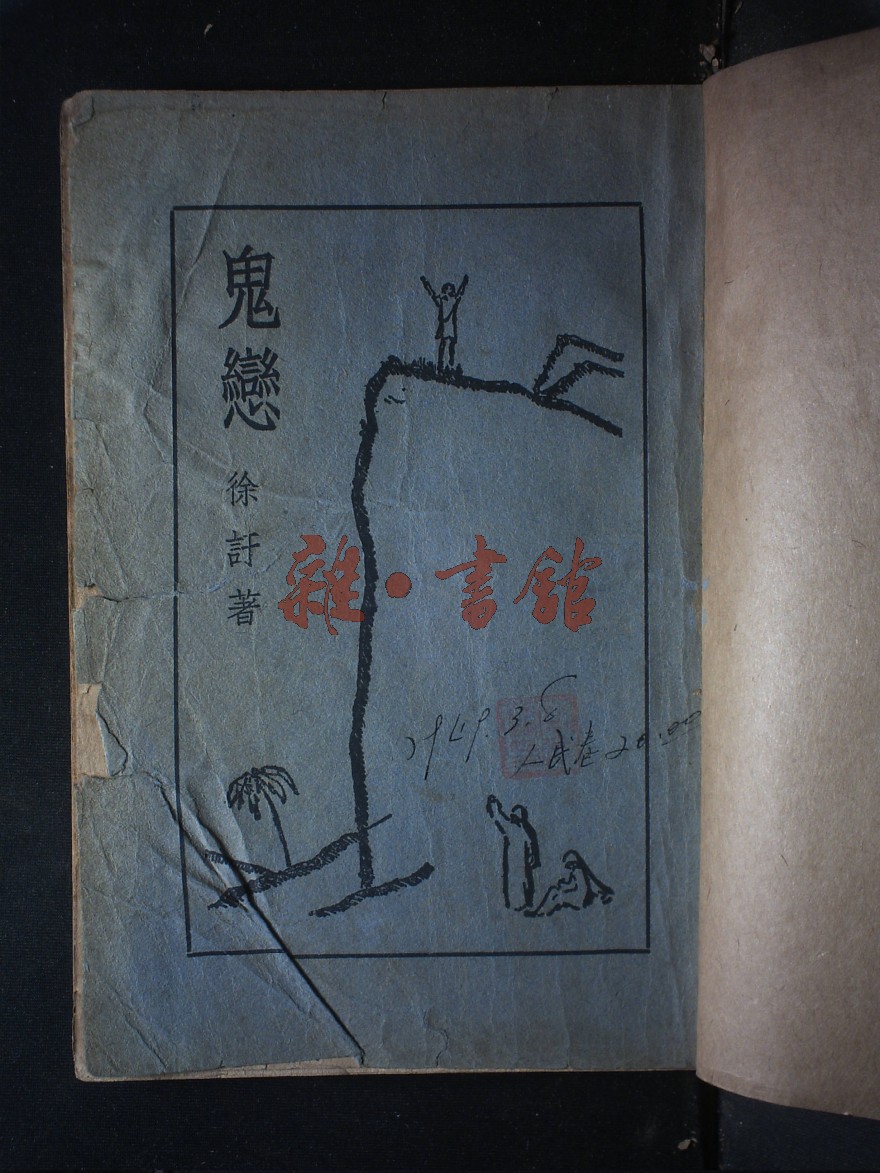 鬼戀
徐訏著
雜·書館
1949.3.8
人民券20.00